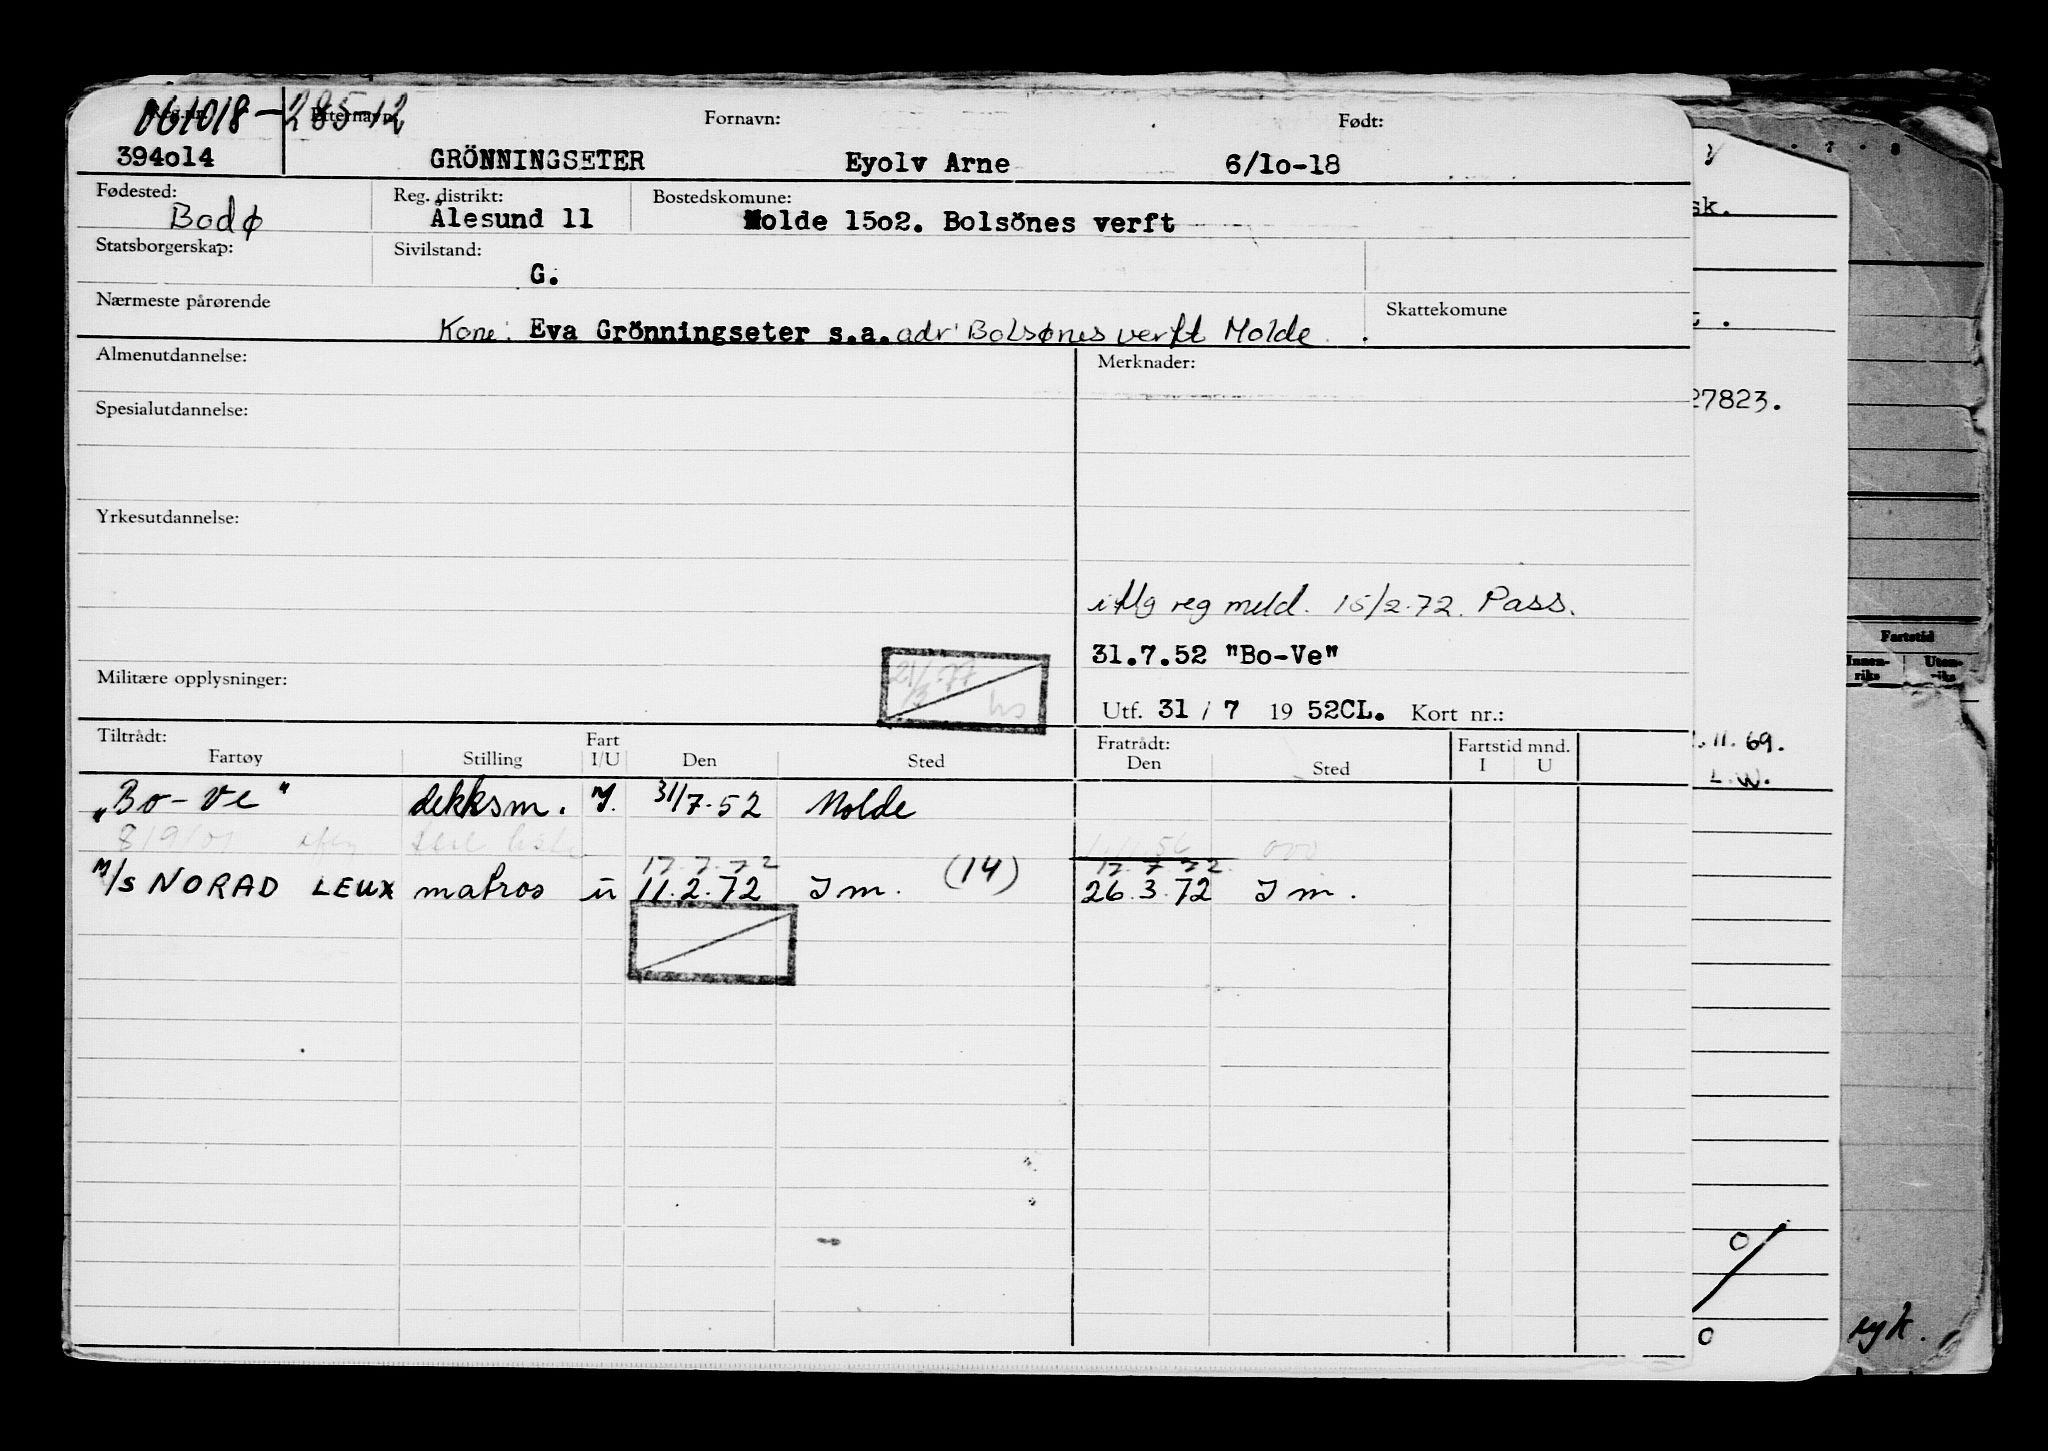 061018-285-12
Fornavn: Født:
394o14 GRÖNNINGSETER Eyolv Arne 6/1o-18
Fødested: Reg. distrikt: Bostedskomune:
Bodø Ålesund 11 Molde 15o2. Bolsönes verft
Statsborgerskap: Sivilstand:
G.
Nærmeste pårørende Skattekomune
Kone: Eva Grönningseter s.a. adr Bolsønes verft Molde
Almenutdannelse: Merknader:
Spesialutdannelse:
Yrkesutdannelse:
reg meld. 15/2.72. Pass.
31.7.52 "Bo-Ve"
Militære opplysninger:
Utf. 31 / 7 19 52CL. Kort nr.:
Tiltrådt: Fratrådt: Fartstid mnd.
Fartøy Stilling Fart I/U Den Sted Den Sted I U
"Bo-Ve" dekksm. 31/7.52 Molde
17.7.72 17.7.72
M/S NORAD LEUX matros u 11.2.72 Im. (14) 26.3.72 Im.
sk.
27823.
.11.69.
L.W.
0
0
7 8
Fartstid
Innen-riks Uten-riks